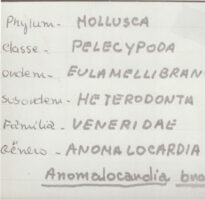 Phylum - MOLLUSCA
Classe - PELECYPODA
ordem - EULAMELLIBRAN
Subordem - HETERODONTA
Família - VENERIDAE
Gênero - ANOMALOCARDIA
Anomalocardia bra